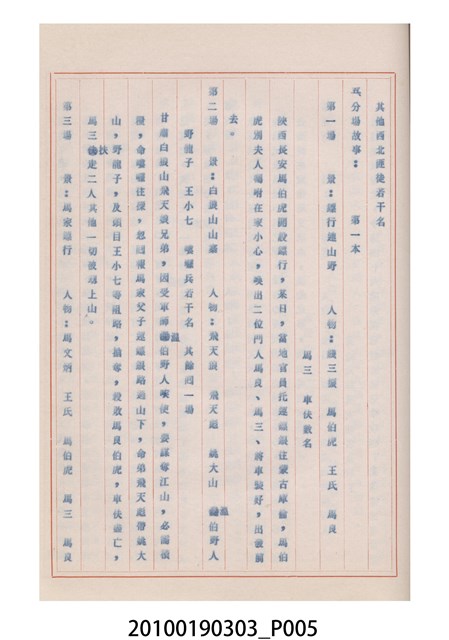 其他西北匪徒若干名
五、分場故事： 第一本
第一場 景：鏢行連山野 人物：錢三 馬伯虎 王氏 馬良
馬三 車伕數名
陝西長安馬伯虎開設鏢行，某日，當地官員托運糧往蒙古庫倫，馬伯
虎別夫人囑咐在家小心，喚出二位門人馬良、馬三、將車裝好，出發前
去。
第二場 景：白狼山山寨 人物：飛天 飛天 姚大山 伯野人
野龍子 王小七 嘍囉兵若干名 其餘同一場
甘肅白狼山飛天兄弟，因受軍師伯野人唆使，要謀奪江山，必需糧
，命嘍囉往探，忽回報馬家父子運糧路過山下，命弟飛天帶姚大
山，野龍子，及頭目王小七等阻路，搶奪，殺敗馬良伯虎，車伕亡，
馬三扶走二人其他一切被劫上山。
第三場 景：馬家鏢行 人物：馬文炳 王氏 馬伯虎 馬三 馬良
20100190303_P005